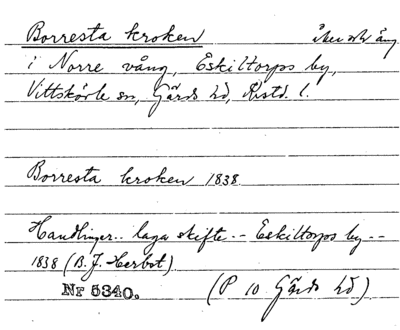 Borresta kroken åker och äng
i Norre vång, Eskiltorps by,
Vittskövle sn, Gärds hd, Kristd. l.
Borresta kroken 1838
Handlingar.. laga skifte -- Eskiltorps by --
1838 (B. J. Herbst)
Nr 5340. (P 10 Gärds hd)